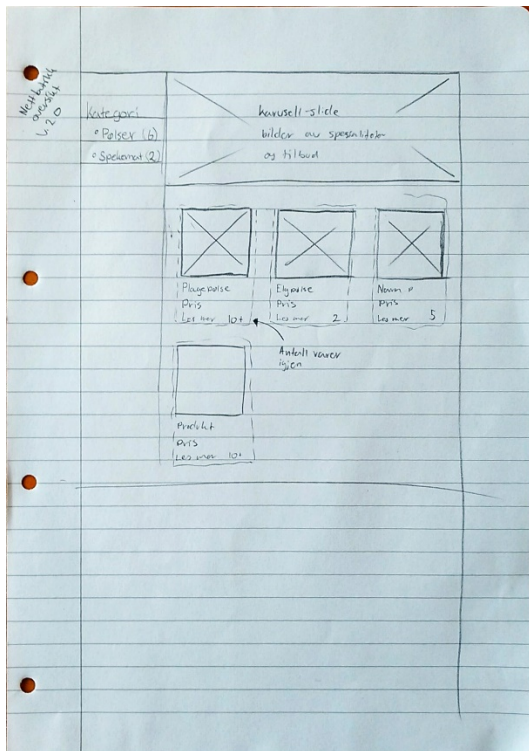 Nettbutikk
oversikt
v.2.0
Kategori
• Pølser (6)
• Spekemat (2)
karusell-slide
bilder av spesialiteter
og tilbud
Pris
Les mer 10+
Elgpølse
Pris
Les mer 2
Navn
Pris
Les mer 5
Antall varer
igjen
Produkt
Pris
Les mer 10+